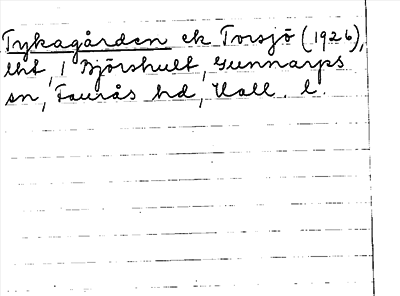 Tykagården ek Torsjö (1926),
lht, 1 Björshult, Gunnarps
sn, Faurås hd, Hall. l.